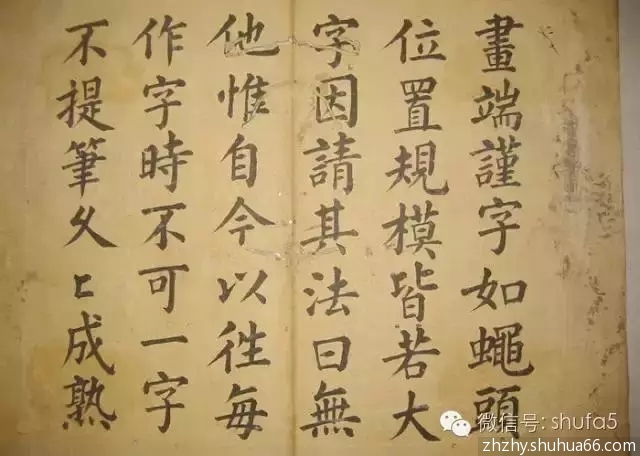 畫端謹字如蠅頭
位置規模皆若大
字因請其法曰無
他惟自今以徃每
作字時不可一字
不提筆久〻成熟
微信号: shufa5
zhzhy.shuhua66.com